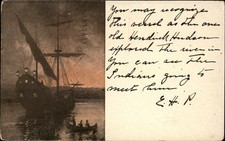 You may recognize
this vessel as the one
old Hendrick Hudson
explored the river in
You can see the
Indians going to
meet him
E. H. P.